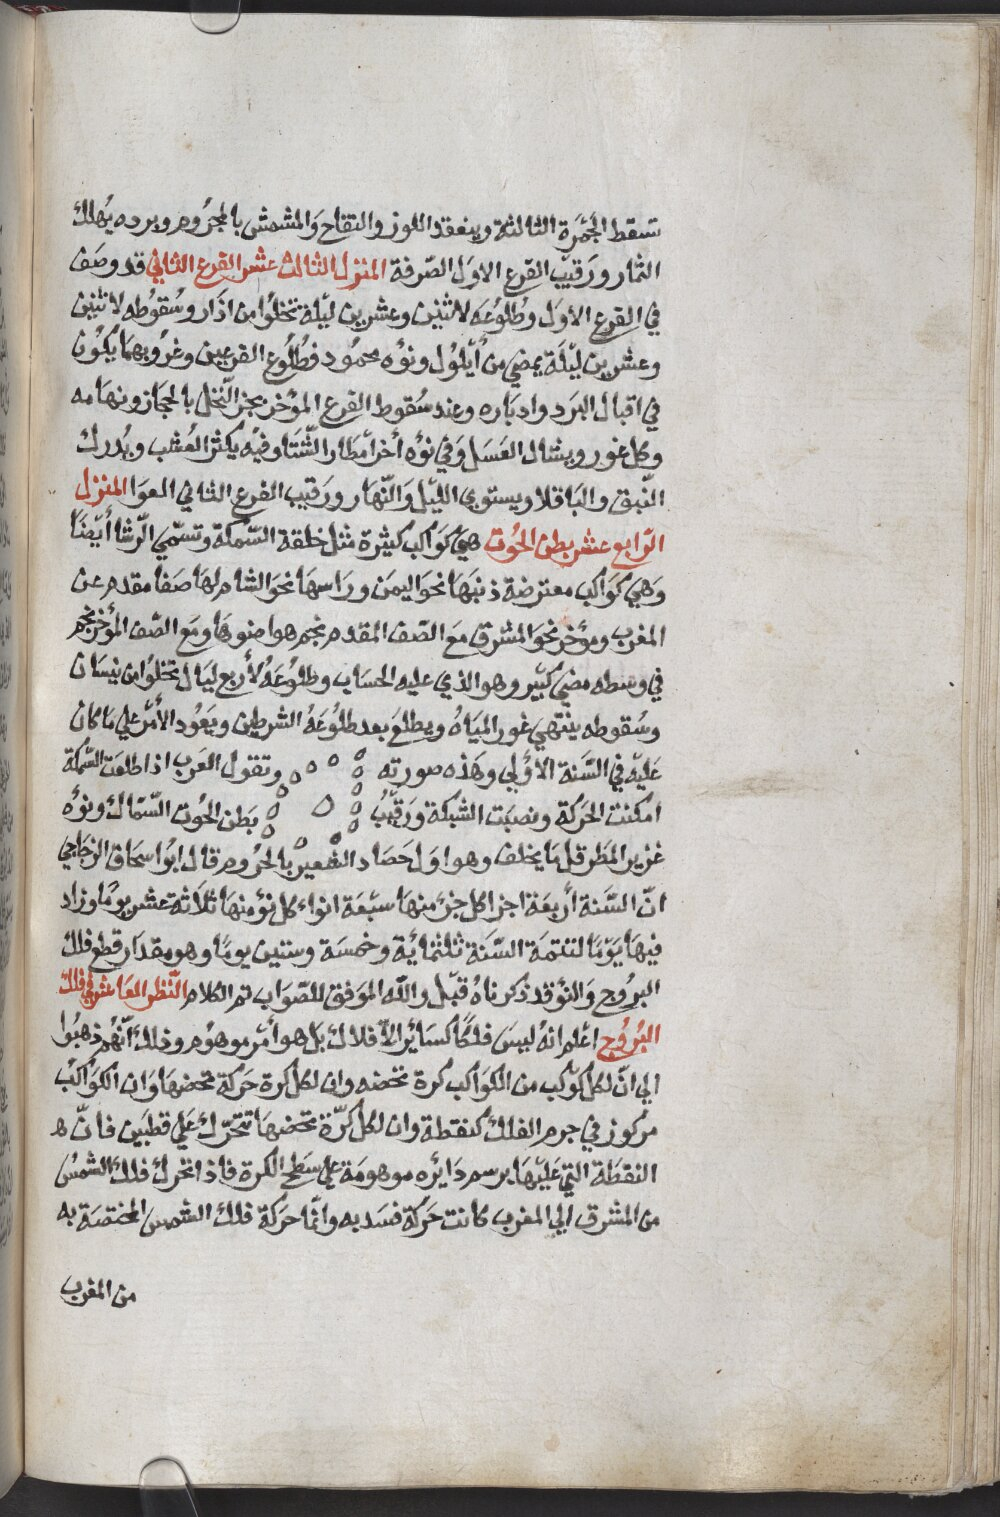 تسقط الجَمرَة الثالثة وينعقد اللوز والتفاح وَالمشمش بالجرُوم وبرده يُهلك
الثمار ورَقيبُ الفرع الاوَل الصَرفة المنزل الثالث عشر الفرع الثاني قد وصَف
في الفرع الاوَل وطُلوُعَه لاثنَين وعشرين ليْلة تخلوُا من اذَار وسُقوُطه لاثنين
وعشرين ليْلَة يمضي من أيْلوُل ونوْه محموُد فطُلُوع الفرعين وغروُبهمَا يكُون
في اقبال البرَد وادبَاره وعند سُقوط الفرع المؤخر يجز النّخل بالحجَاز وتهَامه
وكل غور ويشتال العَسَل وَفي نوْه أخر أمطار الشّتَا وفيْه يكثر العُشب ويُدرك
النّبق والبَاقلا ويستوي الليْل والنّهَار ورَقيب الفرع الثاني العوَا المنزل
الرّابع عشر بطن الحُوت هيَ كوَاكب كثيرة مثل خلقة السّمكة وتسمّي الرّشا أيْضًا
وَهي كوَاكب معترضة ذنبَهَا نحوَ اليمَن ورَاسهَا نحوَ الشام لهَا صَفا مقدم عن
المغرب ومؤخر نحوَ المشرق مَع الصّف المقدم نجم هوا ضنوهَا ومَع الصّف المؤخر نجم
في وسطه مضي كبّير وهو الذي عليه الحسَاب وطلوُعَهُ لأربع ليَال تخلوُا من نيسَان
وسُقوطه ينتهي غور الميَاهُ ويطلعَ بعد طلوُعَهُ الشرطين ويَعُود الأمْر علي مَا كان
عَليْه في السّنة الاوُلي وهَذه صورته وتقول العَرب اذا طلعَت السّمكة
امكنت الحَركة ونصبَت الشبكة ورَقيْبُ بَطن الحُوت السّمَاك ونوْه
غزير المَطَر قل مَا يخلف وهو اوَل حَصَاد الشعيرْ بالجرُوم قال ابوُا سحَاق الزجاجي
انّ السَّنة أربَعَة اجزا كل جزْ منهَا سبْعَة انواء كل نوْ منهَا ثلاثة عشر يومًا وزاد
فيهَا يَومًا لتتمة السّنَة ثلثمايْة وخمسَة وستين يومًا وهو مقدَار قطع فلك
البرُوج وَالنوْ قد ذكرناهُ قبْل والله الموَفق للصّوَاب تم الكلام النّظر العَاشر في فلك
البُرُوج اعْلم انهُ ليسَ فلكًا كسَائر الأفلاك بَل هوا أمْر موهُوم وذلك أنّهم ذهبُوا
الي انّ لكل كوْكب من الكوَاكب كرة تخضه وان لكل كرة حَركة تخضهَا وَان الكوَاكبُ
مركوز في جرم الفلك كنقطة وان لكل كرّة تخضهَا تتحّرك علي قطبَين فانّ ه
النقطَة التي عَليْهَا برسم دَايْره موهومَة علي سَطح الكرة فاذا تحّرك فلك الشمسُ
من المشرق الي المغرب كانت حَركة فسَد به وانّما حَركة فلك الشمسُ المختصَة به
من المغرب